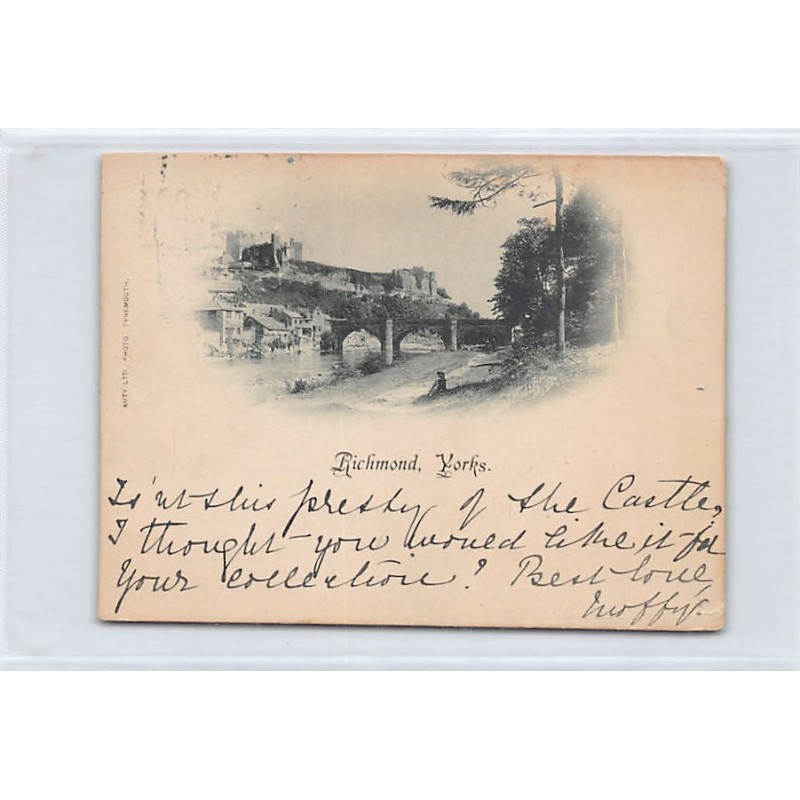 AUTY LTD., PHOTO. TYNEMOUTH.
Richmond, Yorks.
Is'nt this pretty of the Castle,
I thought you would like it for
your collection? Best love,
Moffy.